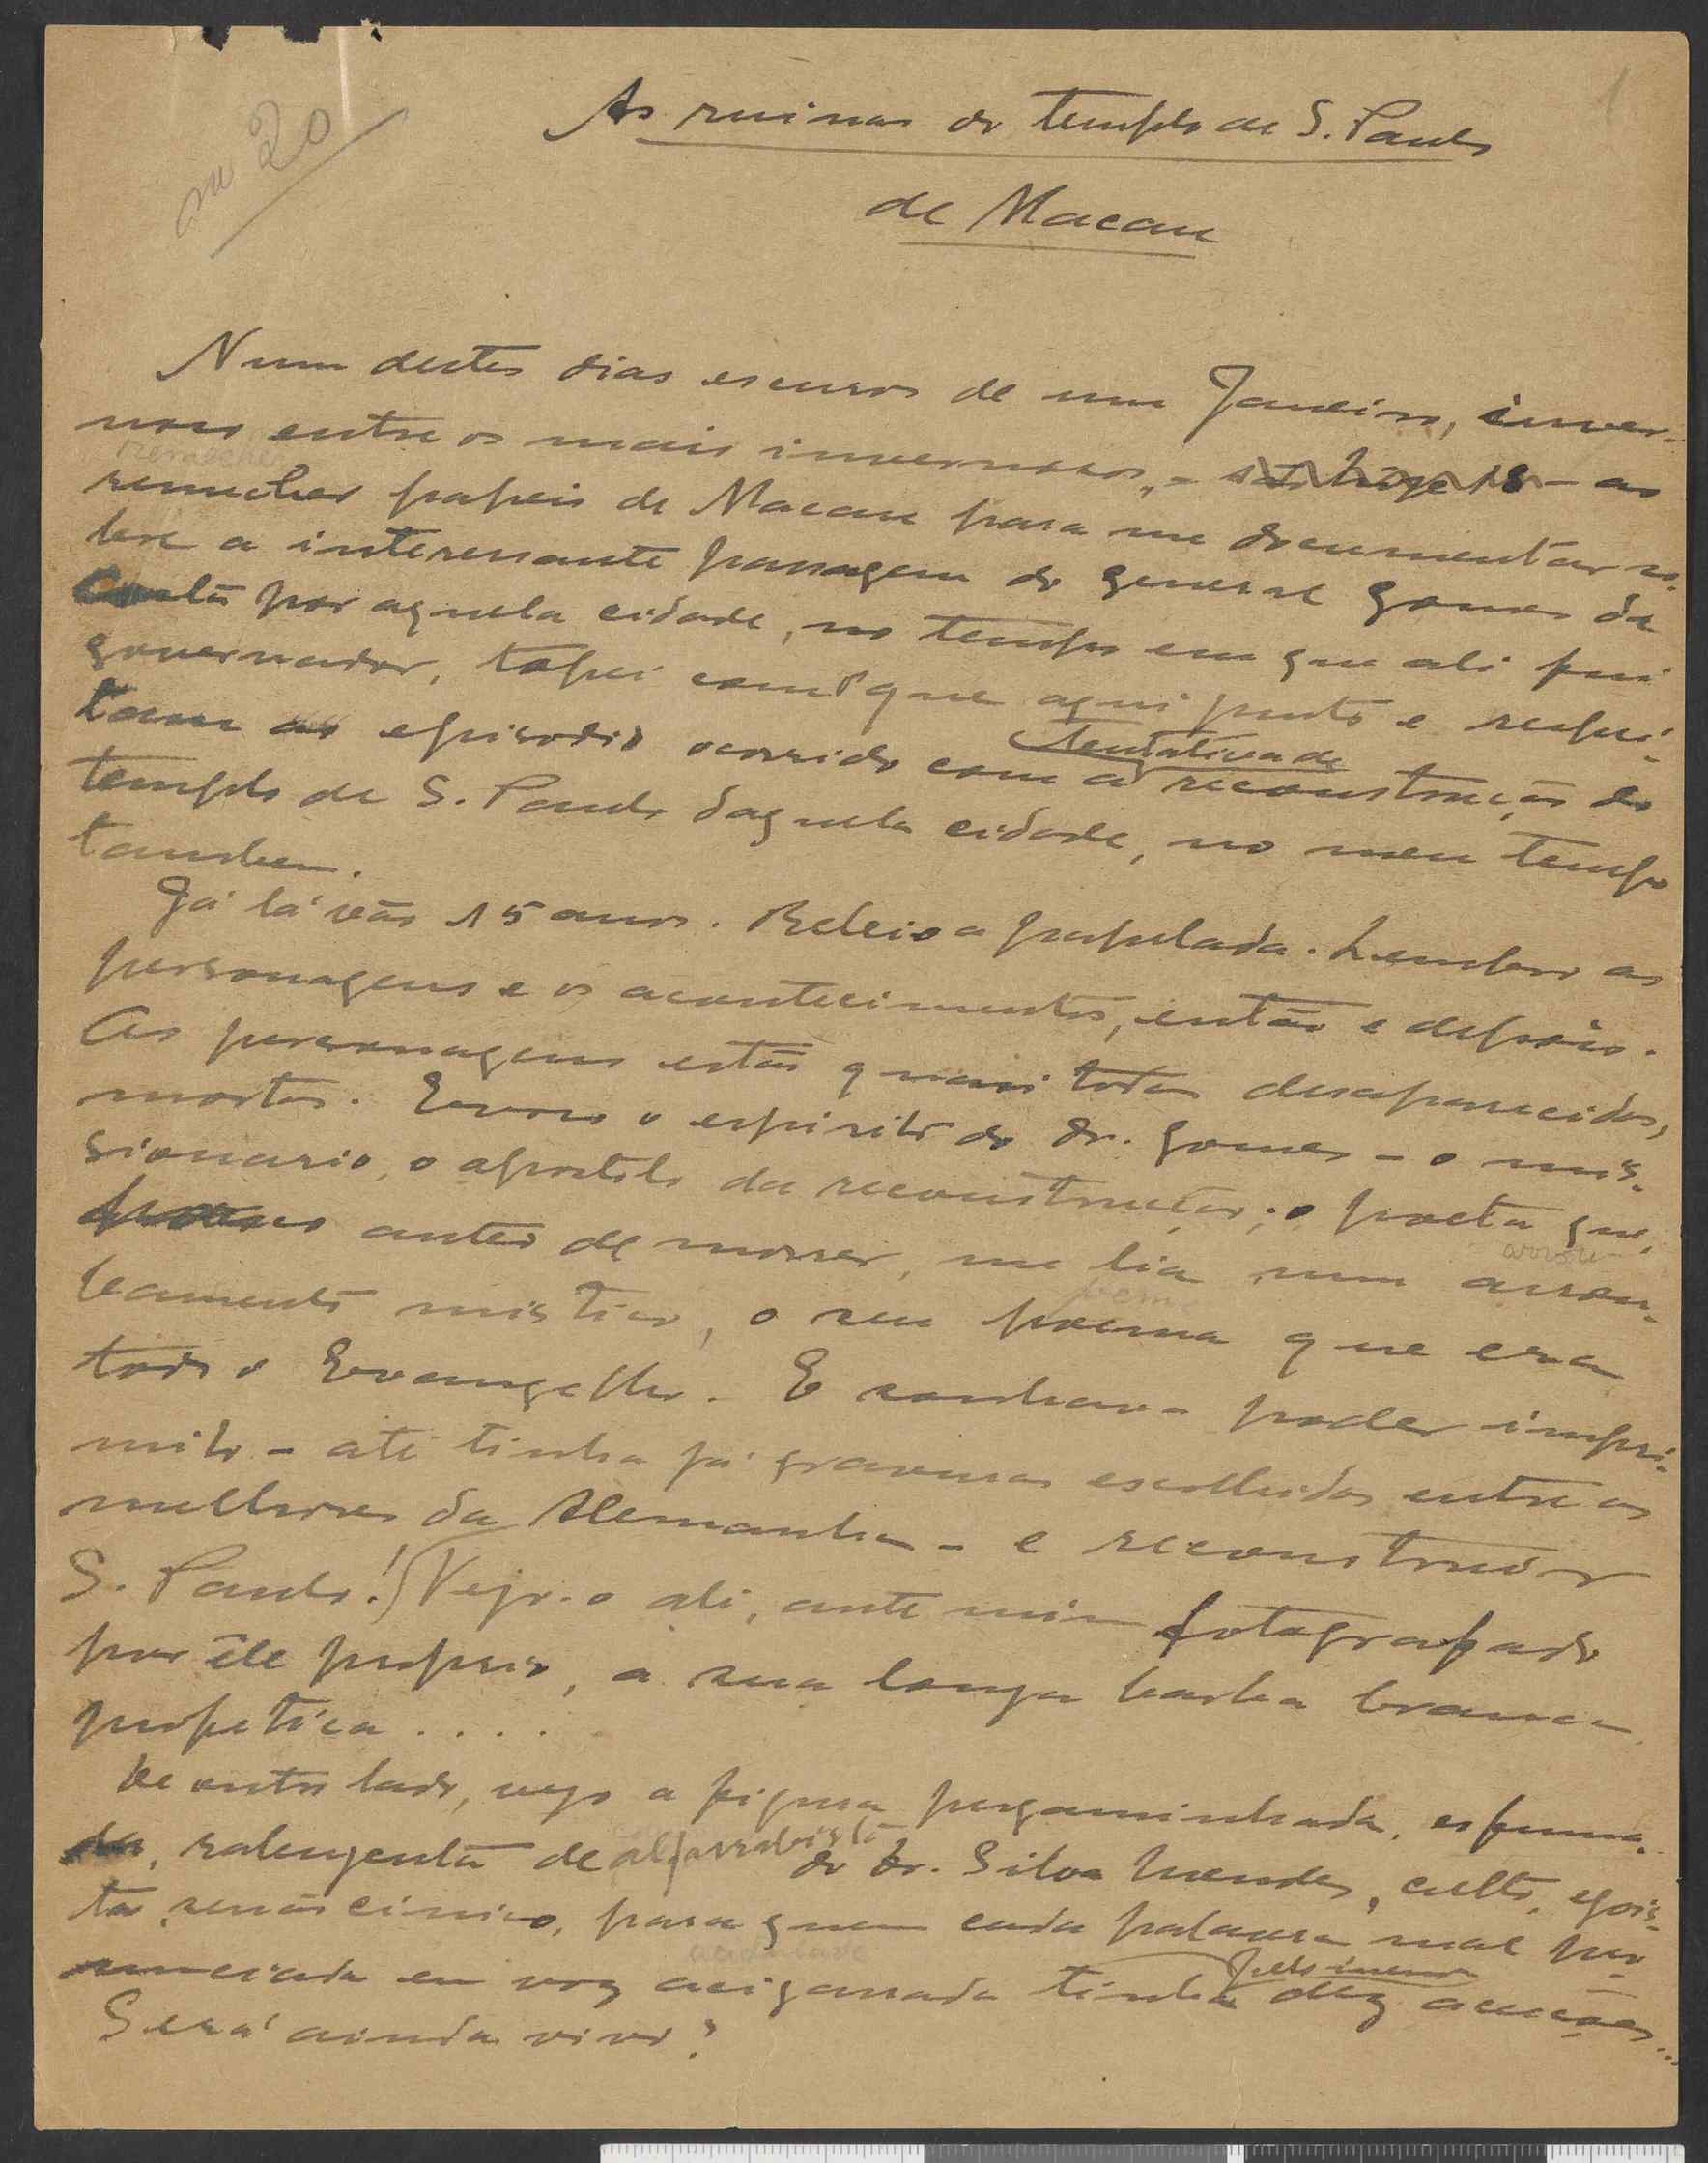 1
nu 20
As ruinas do templo de S. Paulo
de Macau
Num destes dias escuros de um Janeiro, inver-
noso entre os mais invernosos, - - ao
remecher
remecher papeis de Macau para me documentar so-
bre a interessante passagem do general Gomes da
Costa por aquela cidade, no tempo em que ali fui
governador, topei com o que aqui junto e respei-
tam ao episodio ocorrido com a reconstrução do
tentativa de
templo de S. Paulo daquela cidade, no meu tempo
tambem.
Já lá vão 15 anos. Releio a papelada. Lembro as
personagens e os acontecimentos, então e depois.
As personagens estão quasi todas desaparecidas,
mortas. Evoco o espirito do Dr. Gomes - o mis-
sionario, o apostolo da reconstrução; o poeta que,
pouco antes de morrer, me lia num arrou-
bamento mistico, o seu poema que era
todo o Evangelho. E sonhava poder impri-
mil-o - até tinha já gravuras escolhidas entre as
melhores da Alemanha - e reconstruir
S. Paulo! Vejo-o ali, ante mim fotografado
por êle proprio, a sua longa barba branca
profetica . . . .
De outro lado, vejo a figura pergaminhada, esfuma-
da, rabugenta de alfarrabista do Dr. Silva Mendes, culto, egois-
ta, senão cinico, para quem cada palavra mal pro-
nunciada em voz acigarrada tinha dez acuções...
pelo menos
Será ainda vivo?